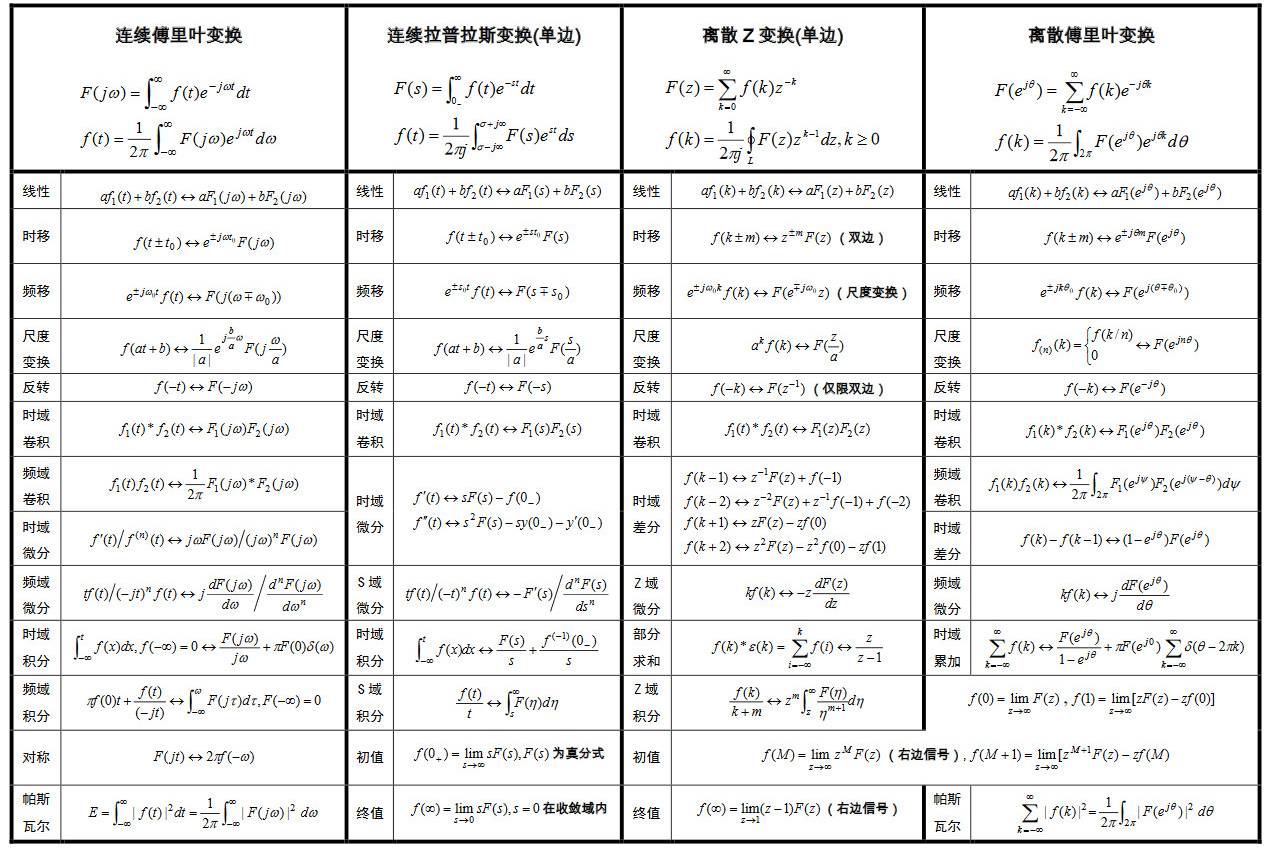 连续傅里叶变换
F(jω)=∫_{-∞}^{∞} f(t)e^{-jωt}dt
f(t)=\frac{1}{2π}∫_{-∞}^{∞} F(jω)e^{jωt}dω
连续拉普拉斯变换(单边)
F(s)=∫_{0_-}^{∞} f(t)e^{-st}dt
f(t)=\frac{1}{2πj}∫_{σ-j∞}^{σ+j∞} F(s)e^{st}ds
离散 Z 变换(单边)
F(z)=∑_{k=0}^{∞} f(k)z^{-k}
f(k)=\frac{1}{2πj}∮_L F(z)z^{k-1}dz, k≥0
离散傅里叶变换
F(e^{jθ})=∑_{k=-∞}^{∞} f(k)e^{-jθk}
f(k)=\frac{1}{2π}∫_{2π} F(e^{jθ})e^{jθk}dθ
线性 af_1(t)+bf_2(t)↔aF_1(jω)+bF_2(jω)
线性 af_1(t)+bf_2(t)↔aF_1(s)+bF_2(s)
线性 af_1(k)+bf_2(k)↔aF_1(z)+bF_2(z)
线性 af_1(k)+bf_2(k)↔aF_1(e^{jθ})+bF_2(e^{jθ})
时移 f(t±t_0)↔e^{±jωt_0}F(jω)
时移 f(t±t_0)↔e^{±st_0}F(s)
时移 f(k±m)↔z^{±m}F(z)（双边）
时移 f(k±m)↔e^{±jθm}F(e^{jθ})
频移 e^{±jω_0t}f(t)↔F(j(ω∓ω_0))
频移 e^{±s_0t}f(t)↔F(s∓s_0)
频移 e^{±jω_0k}f(k)↔F(e^{∓jω_0}z)（尺度变换）
频移 e^{±jkθ_0}f(k)↔F(e^{j(θ∓θ_0)})
尺度变换 f(at+b)↔\frac{1}{|a|}e^{j\frac{b}{a}ω}F(j\frac{ω}{a})
尺度变换 f(at+b)↔\frac{1}{|a|}e^{\frac{b}{a}s}F(\frac{s}{a})
尺度变换 a^kf(k)↔F(\frac{z}{a})
尺度变换 f_{(n)}(k)={f(k/n) 0 ↔F(e^{jnθ})
反转 f(-t)↔F(-jω)
反转 f(-t)↔F(-s)
反转 f(-k)↔F(z^{-1})（仅限双边）
反转 f(-k)↔F(e^{-jθ})
时域卷积 f_1(t)*f_2(t)↔F_1(jω)F_2(jω)
时域卷积 f_1(t)*f_2(t)↔F_1(s)F_2(s)
时域卷积 f_1(t)*f_2(t)↔F_1(z)F_2(z)
时域卷积 f_1(k)*f_2(k)↔F_1(e^{jθ})F_2(e^{jθ})
频域卷积 f_1(t)f_2(t)↔\frac{1}{2π}F_1(jω)*F_2(jω)
时域微分 f'(t)↔sF(s)-f(0_-)
f''(t)↔s^2F(s)-sy(0_-)-y'(0_-)
时域差分 f(k-1)↔z^{-1}F(z)+f(-1)
f(k-2)↔z^{-2}F(z)+z^{-1}f(-1)+f(-2)
f(k+1)↔zF(z)-zf(0)
f(k+2)↔z^2F(z)-z^2f(0)-zf(1)
频域卷积 f_1(k)f_2(k)↔\frac{1}{2π}∫_{2π}F_1(e^{jψ})F_2(e^{j(ψ-θ)})dψ
时域微分 f'(t)/f^{(n)}(t)↔jωF(jω)/(jω)^nF(jω)
时域差分 f(k)-f(k-1)↔(1-e^{jθ})F(e^{jθ})
频域微分 tf(t)/(-jt)^nf(t)↔j\frac{dF(jω)}{dω}/\frac{d^nF(jω)}{dω^n}
S 域微分 tf(t)/(-t)^nf(t)↔-F'(s)/\frac{d^nF(s)}{ds^n}
Z 域微分 kf(k)↔-z\frac{dF(z)}{dz}
频域微分 kf(k)↔j\frac{dF(e^{jθ})}{dθ}
时域积分 ∫_{-∞}^{t}f(x)dx, f(-∞)=0↔\frac{F(jω)}{jω}+πF(0)δ(ω)
时域积分 ∫_{-∞}^{t}f(x)dx↔\frac{F(s)}{s}+\frac{f^{(-1)}(0_-)}{s}
部分求和 f(k)*ε(k)=∑_{i=-∞}^{k}f(i)↔\frac{z}{z-1}
时域累加 ∑_{k=-∞}^{∞}f(k)↔\frac{F(e^{jθ})}{1-e^{jθ}}+πF(e^{j0})∑_{k=-∞}^{∞}δ(θ-2πk)
频域积分 πf(0)t+\frac{f(t)}{(-jt)}↔∫_{-∞}^{ω}F(jτ)dτ, F(-∞)=0
S 域积分 \frac{f(t)}{t}↔∫_{s}^{∞}F(η)dη
Z 域积分 \frac{f(k)}{k+m}↔z^m∫_{z}^{∞}\frac{F(η)}{η^{m+1}}dη
f(0)=lim_{z→∞}F(z) , f(1)=lim_{z→∞}[zF(z)-zf(0)]
对称 F(jt)↔2πf(-ω)
初值 f(0_+)=lim_{s→∞}sF(s), F(s) 为真分式
初值 f(M)=lim_{z→∞}z^MF(z)（右边信号）, f(M+1)=lim_{z→∞}[z^{M+1}F(z)-zf(M)
帕斯瓦尔 E=∫_{-∞}^{∞}|f(t)|^2dt=\frac{1}{2π}∫_{-∞}^{∞}|F(jω)|^2 dω
终值 f(∞)=lim_{s→0}sF(s), s=0 在收敛域内
终值 f(∞)=lim_{z→1}(z-1)F(z)（右边信号）
帕斯瓦尔 ∑_{k=-∞}^{∞}|f(k)|^2=\frac{1}{2π}∫_{2π}|F(e^{jθ})|^2 dθ